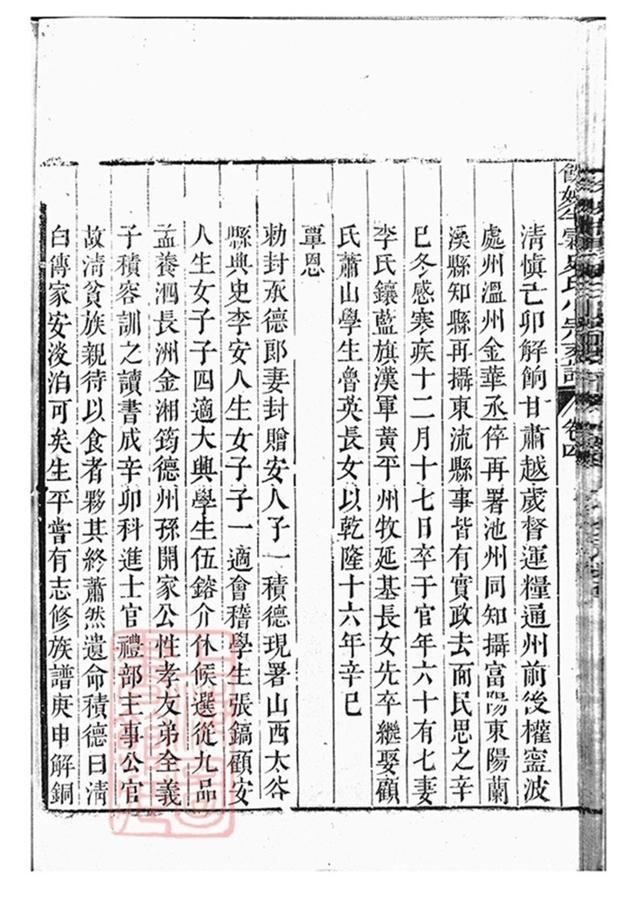 清慎亡卯解餉甘肅越歲督運糧通州前後權寍波
處州溫州金華丞倅再署池州同知攝富陽東陽蘭
溪縣知縣再攝東流縣事皆有實政去而民思之辛
巳冬感寒疾十二月十七日卒于官年六十有七妻
李氏鑲藍旗漢軍黃平州牧延基長女先卒繼娶顧
氏蕭山學生魯英長女以乾隆十六年辛巳
覃恩
勅封承德郎妻封贈安人子一積德現署山西太谷
縣典史李安人生女子子一適會稽學生張鎬顧安
人生女子子四適大興學生伍鎔介休候選從九品
孟養泗長洲金湘筠德州孫開家公性孝友弟全義
子積容訓之讀書成辛卯科進士官禮部主事公官
故淸貧族親待以食者夥其終蕭然遺命積德曰淸
白傳家安淡泊可矣生平嘗有志修族譜庚申解銅
卷四